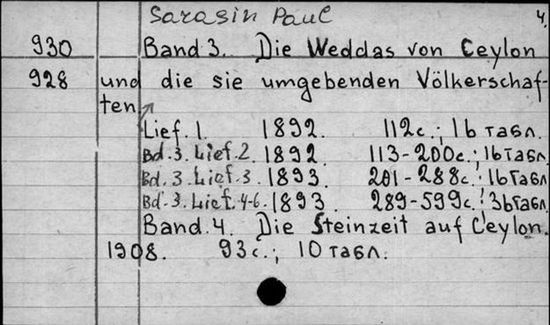 Sarasin Paul 4.
930 Band 3. Die Weddas von Ceylon
928 und die sie umgebenden Völkerschaf-
ten
Lief. 1. 1892. 112с.; 16 табл.
Bd. 3. Lief. 2. 1892. 113-200с.; 16 табл.
Bd. 3. Lief. 3 1893. 201-288с.; 16 табл.
Bd. 3. Lief. 4-6. 1893. 289-599с.; 36 табл.
Band. 4. Die Steinzeit auf Ceylon.
1908. 93с.; 10 табл.